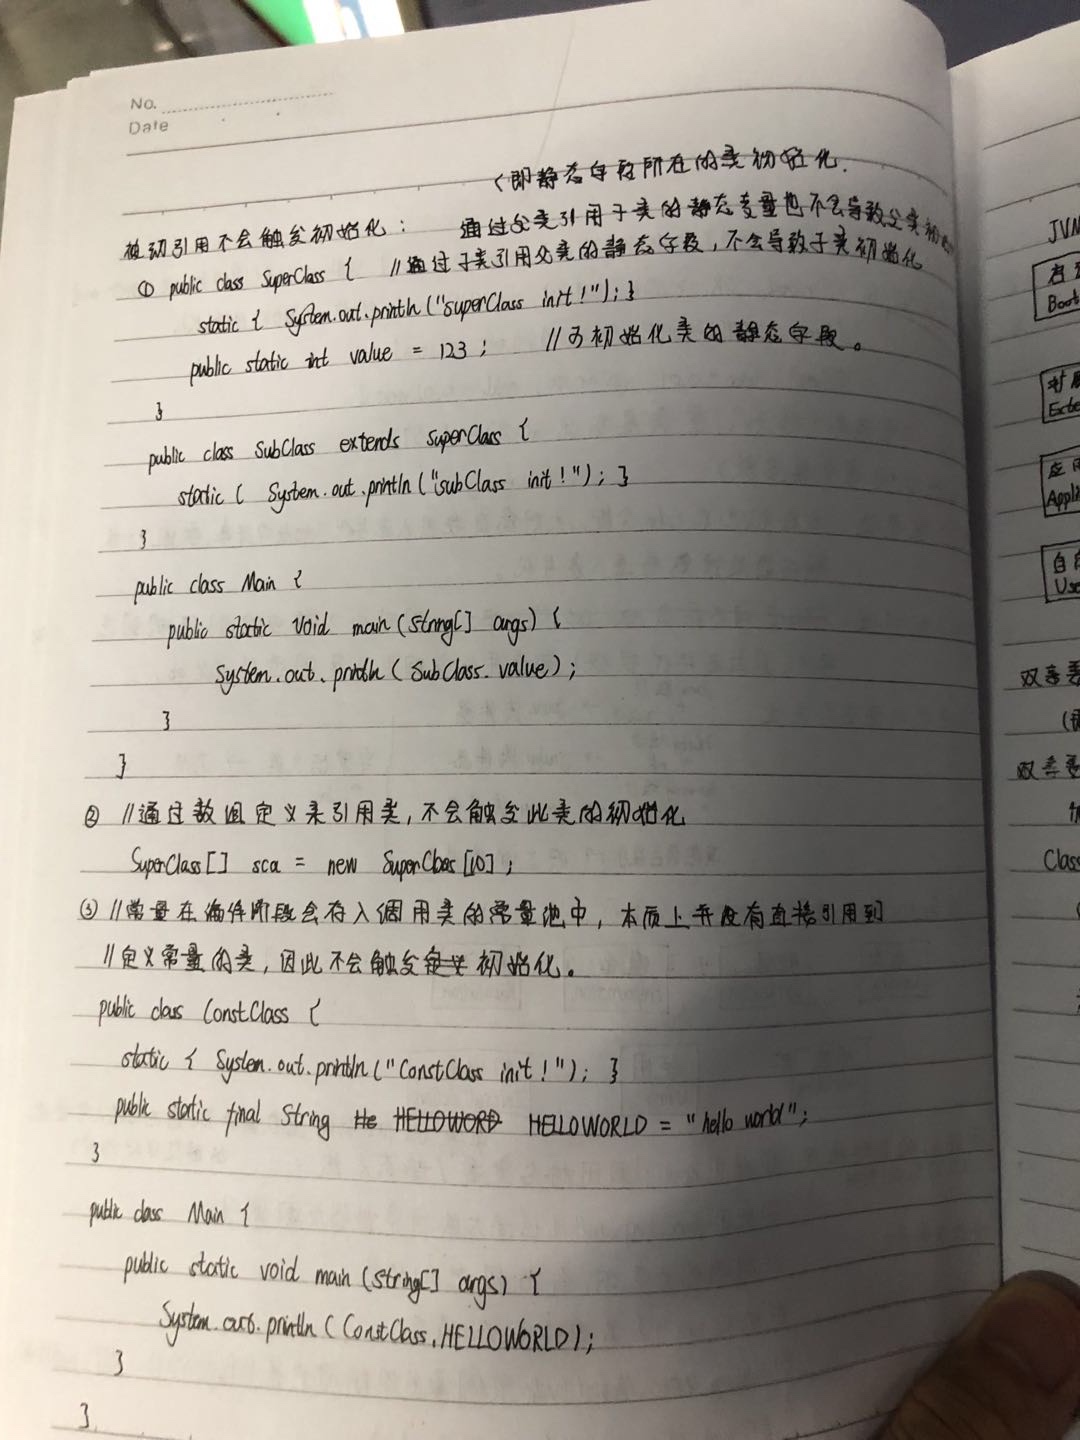 No.
Date
(即静态字段所在的类初始化.
被动引用不会触发初始化: 通过父类引用子类的静态变量也不会导致父类初始化
① public class SuperClass { //通过子类引用父类的静态字段,不会导致子类初始化
static { System.out.println("superClass init!"); }
public static int value = 123; //只初始化类的静态字段。
}
public class SubClass extends superClass {
static { System.out.println("subClass init!"); }
}
public class Main {
public static void main(String[] args) {
System.out.println(SubClass.value);
}
}
② //通过数组定义来引用类,不会触发此类的初始化
SuperClass[] sca = new SuperClass[10];
③ //常量在编译阶段会存入调用类的常量池中,本质上并没有直接引用到
//定义常量的类,因此不会触发定义初始化。
public class ConstClass {
static { System.out.println("ConstClass init!"); }
public static final String He HELLOWORD HELLOWORLD = "hello world";
}
public class Main {
public static void main(String[] args) {
System.out.println(ConstClass.HELLOWORLD);
}
}
JVM
Boot
扩展
Exte
应用
Appli
自
Use
双亲委
双亲委
Class